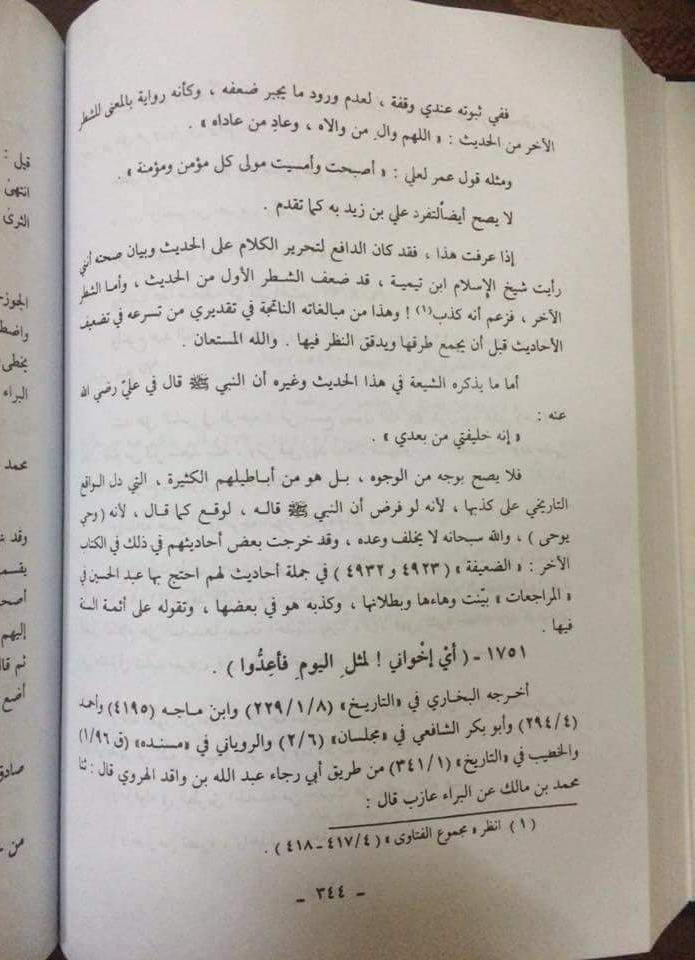 ففي ثبوته عندي وقفة ، لعدم ورود ما يجبر ضعفه ، وكأنه رواية بالمعنى للشطر
الآخر من الحديث : « اللهم وال من والاه ، وعادِ من عاداه » .
ومثله قول عمر لعلي : « أصبحت وأمسيت مولى كل مؤمن ومؤمنة » .
لا يصح أيضاً لتفرد علي بن زيد به كما تقدم .
إذا عرفت هذا ، فقد كان الدافع لتحرير الكلام على الحديث وبيان صحته أنني
رأيت شيخ الإسلام ابن تيمية ، قد ضعف الشطر الأول من الحديث ، وأما الشطر
الآخر ، فزعم أنه كذب(١) ! وهذا من مبالغاته الناتجة في تقديري من تسرعه في تضعيف
الأحاديث قبل أن يجمع طرقها ويدقق النظر فيها . والله المستعان .
أما ما يذكره الشيعة في هذا الحديث وغيره أن النبي ﷺ قال في عليّ رضي الله
عنه :
« إنه خليفتي من بعدي » .
فلا يصح بوجه من الوجوه ، بل هو من أباطيلهم الكثيرة ، التي دل الواقع
التاريخي على كذبها ، لأنه لو فرض أن النبي ﷺ قاله ، لوقع كما قال ، لأنه ( وحي
يوحى ) ، والله سبحانه لا يخلف وعده ، وقد خرجت بعض أحاديثهم في ذلك في الكتاب
الآخر : « الضعيفة » ( ٤٩٢٣ و ٤٩٣٢ ) في جملة أحاديث لهم احتج بها عبد الحسين في
« المراجعات » بيّنت وهاءها وبطلانها ، وكذبه هو في بعضها ، وتقوله على أئمة السنة
فيها .
١٧٥١ - ( أيْ إخْواني ! لمثلِ اليومِ فأعِدُّوا ) .
أخرجه البخاري في « التاريخ » (٢٢٩/١/٨) وابن ماجه (٤١٩٥) وأحمد
(٢٩٤/٤) وأبو بكر الشافعي في « مجلسان » (٢/٦) والروياني في « مسنده » (ق ١/٩٦)
والخطيب في « التاريخ » (٣٤١/١) من طريق أبي رجاء عبد الله بن واقد الهروي قال : ثنا
محمد بن مالك عن البراء عازب قال :
(١) انظر « مجموع الفتاوى » ( ٤١٧/٤ - ٤١٨ ) .
- ٣٤٤ -
قيل :
انتهى
الثرى
الجوزج
واضط
يخطىء
البراء
محمد
وقد
يقسم
أصحا
إليهم
ثم قال
أضع
صادق
من